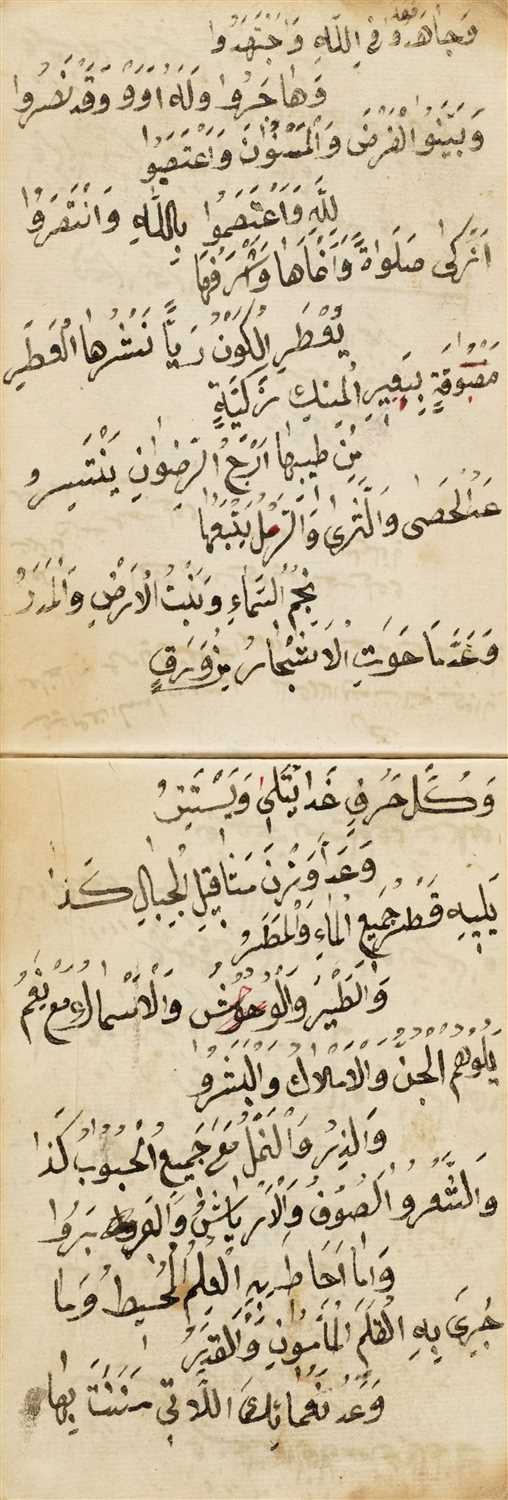 وَجَاهَدُوا مَعَهُ فِي اللَّهِ وَاجْتَهَدُوا
وَهَاجَرُوا وَلَهُ اٰوَوْ وَقَدْ نَصَرُوا
وَبَيَّنُوا الْفَرْضَ وَالْمَسْنُونَ وَاعْتَصَبُوا
لِلَّهِ وَاعْتَصَمُوا بِاللَّهِ وَانْتَصَرُوا
اَزْكٰى صَلَوَاةً وَاَنْمَاهَا وَاَشْرَفُهَا
يُعَطِّرِ الْكَوْنَ رَيًّا نَشْرُهَا الْعَطِرِ
مَعْبُوقَةٍ بِعَبِيرِ الْمِسْكِ زَكِيَّةٍ
مِنْ طِيبِهَا اَرَجُ الرِّضْوَانِ يَنْتَشِرُ
عَدَّ الْحَصٰى وَالثَّرٰى وَالرَّمْلُ يَتْبَعُهَا
نَجْمُ السَّمَاءِ وَنَبْتُ الْاَرْضِ وَالْمَدَرُ
وَعَدَّ مَا حَوَتِ الْاَشْجَارُ مِنْ وَرَقٍ
وَكُلَّ حَرْفٍ غَدَا يُتْلٰى وَيُسْتَتِرُ
وَعَدَّ وَزْنَ مَثَاقِيلِ الْجِبَالِ كَذَا
يَلِيهِ قَطْرُ جَمِيعِ الْمَاءِ وَالْمَطَرُ
وَالطَّيْرُ وَالْوُحُوشُ وَالْاَسْمَاكُ مَعْ نِعَمُ
يَلُوهُمُ الْجِنُّ وَالْاَمْلَاكُ وَالْبَشَرُوا
وَالذَّرُّ وَالنَّمْلُ مَعَ جَمِيعُ الْحُبُوبُ كَذَا
وَالشَّعْرُ وَالصُّوفُ وَالْاَرْيَاشُ وَالْوَبَرُوا
وَمَا اَحَاطَ بِهِ الْعِلْمُ الْمُحِيطُ وَمَا
جُرِيَ بِهِ الْقَلَمِ الْمَأْمُونِ وَالْقَدَرُ
وَعَدَّ نَعْمَائِكَ اللَّاتِي مَنَنْتَ بِهَا